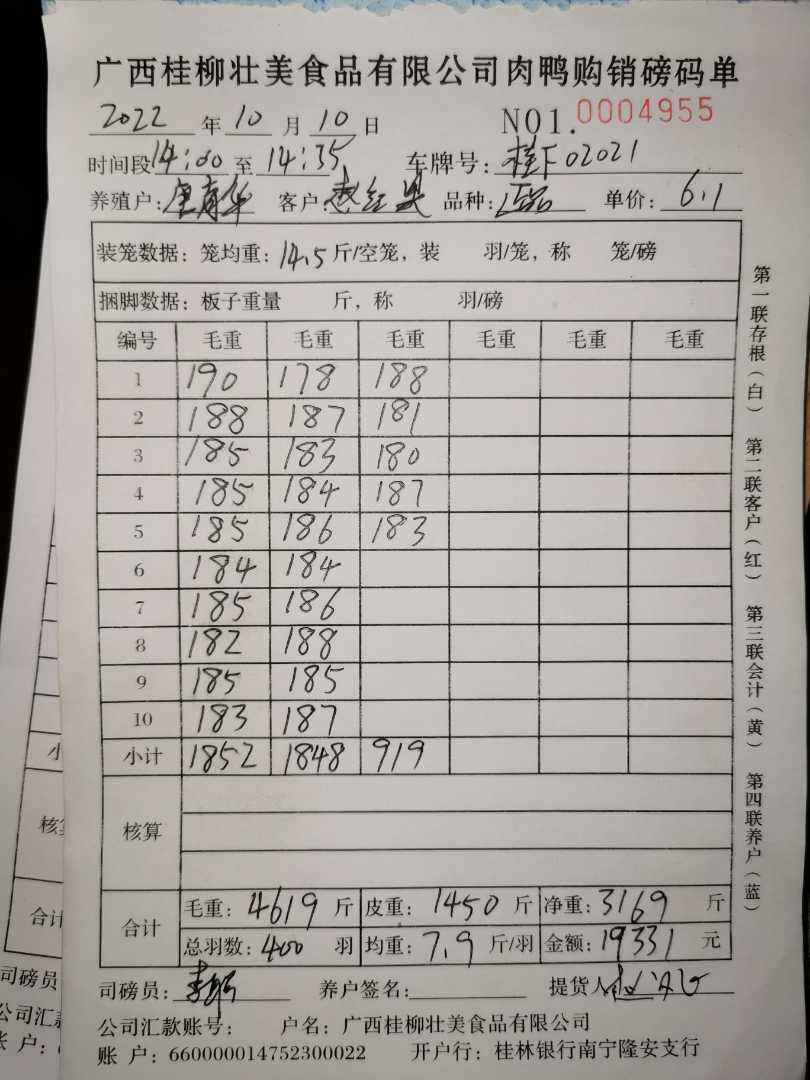 广西桂柳壮美食品有限公司肉鸭购销磅码单
2022 年 10 月 10 日 NO1. 0004955
时间段 14:00 至 14:35 车牌号: 桂F02021
养殖户: 客户: 品种: 正品 单价: 6.1
装笼数据: 笼均重: 14.5 斤/空笼, 装 羽/笼, 称 笼/磅
捆脚数据: 板子重量 斤, 称 羽/磅
编号 毛重 毛重 毛重 毛重 毛重 毛重
1 190 178 188
2 188 187 181
3 185 183 180
4 185 184 187
5 185 186 183
6 184 184
7 185 186
8 182 188
9 185 185
10 183 187
小计 1852 1848 919
核算
合计 毛重: 4619 斤 皮重: 1450 斤 净重: 3169 斤
总羽数: 400 羽 均重: 7.9 斤/羽 金额: 19331 元
司磅员: 养户签名: 提货人
公司汇款账号: 户名: 广西桂柳壮美食品有限公司
账 户: 660000014752300022 开户行: 桂林银行南宁隆安支行
第一联存根(白) 第二联客户(红) 第三联会计(黄) 第四联养户(蓝)
小
核
合计
司磅员
公司汇
户: